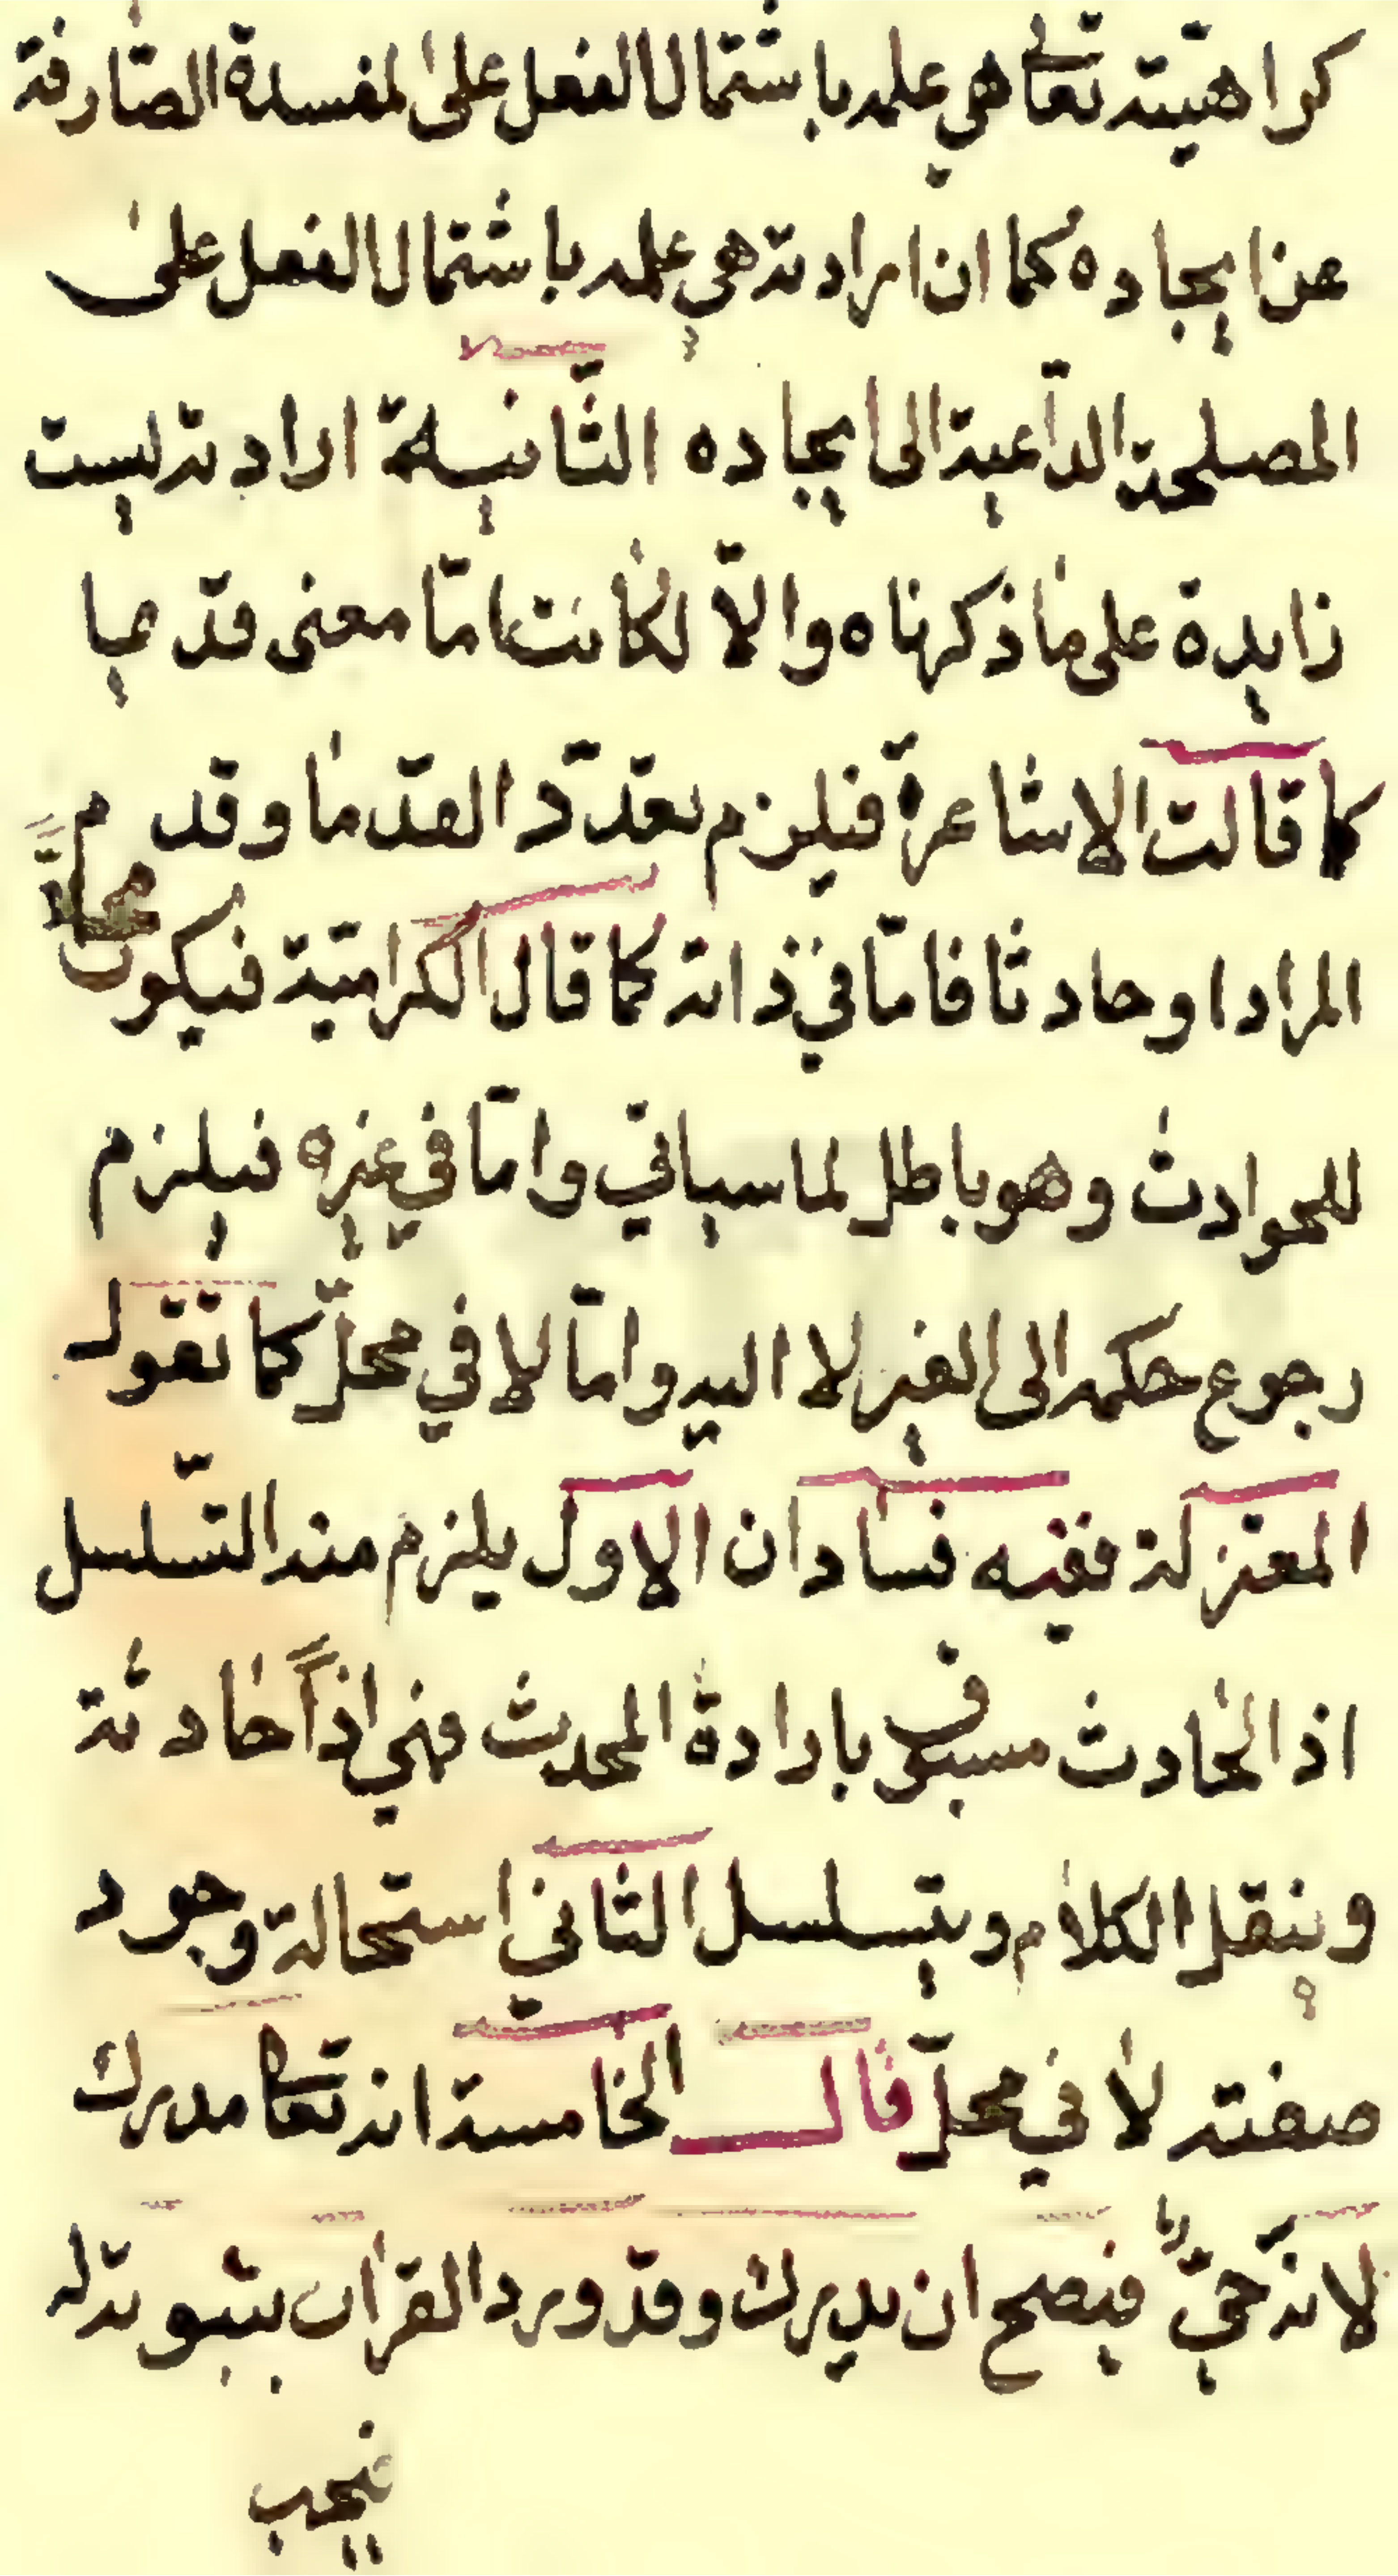 كراهيته تعالى هي علمه باشتمال الفعل على لمفسدة الصارفة
عن ايجاده كما ان ارادته هي علمه باشتمال الفعل على
المصلحة الداعية الى ايجاده الثانية ارادته ليست
زايدة على ما ذكرناه والا لكانت امّا معنى قديما
كما قالت الاشاعرة فيلزم تعدد القدما وقدم
المراد او حادثا فامّا في ذاته كما قال الكراميّة فيكون محلّاً
للحوادث وهو باطل لما سياتي وامّا في غيره فيلزم
رجوع حكمه الى الغير لا اليه وامّا لا في محلّ كما تقول
المعتزلة ففيه فسادان الاول يلزم منه التسلسل
اذ الحادث مسبوق بارادة المحدث فهي اذاً حادثة
وننقل الكلام ويتسلسل الثاني استحالة وجود
صفته لا في محلّ قال الخامسة انه تعالى مدرك
لانه حيّ فيصح ان يدرك وقد ورد القران بثبوته له
فيجب